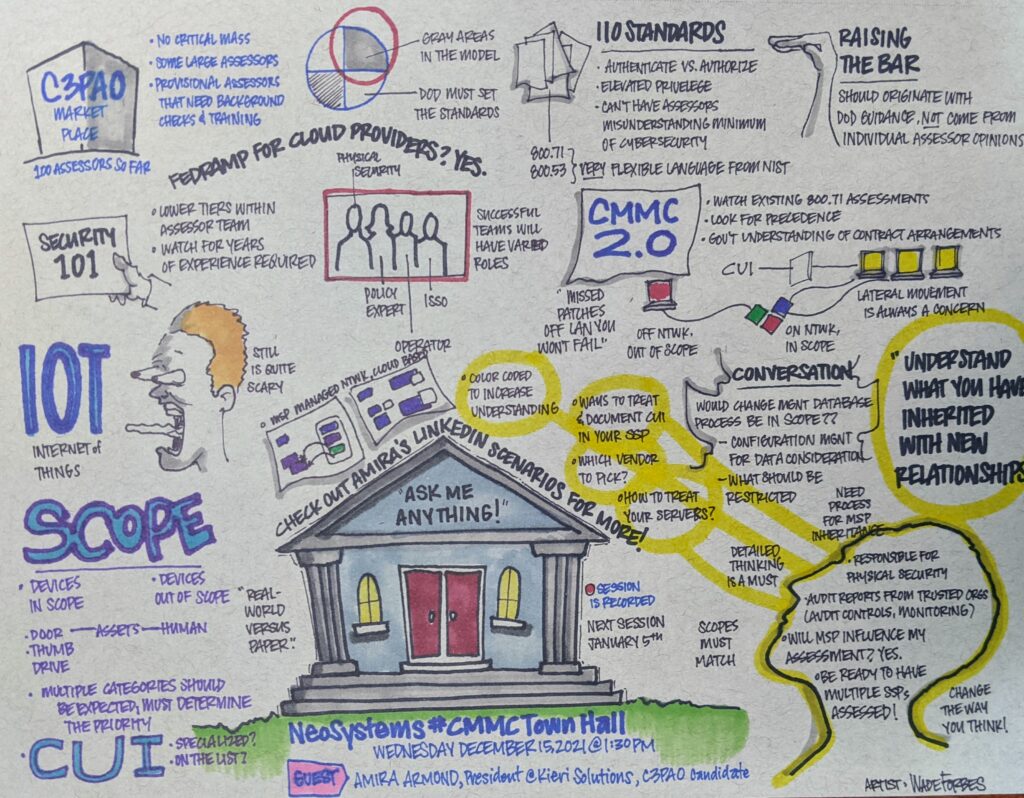 C3PAO
MARKET
PLACE
100 ASSESSORS SO FAR
• NO CRITICAL MASS
• SOME LARGE ASSESSORS
• PROVISIONAL ASSESSORS
THAT NEED BACKGROUND
CHECKS & TRAINING
GRAY AREAS
IN THE MODEL
DOD MUST SET
THE STANDARDS
110 STANDARDS
• AUTHENTICATE VS. AUTHORIZE
• ELEVATED PRIVELEGE
• CAN'T HAVE ASSESSORS
MISUNDERSTANDING MINIMUM
OF CYBERSECURITY
800.71
800.53
VERY FLEXIBLE LANGUAGE FROM NIST
RAISING
THE BAR
SHOULD ORIGINATE WITH
DOD GUIDANCE, NOT COME FROM
INDIVIDUAL ASSESSOR OPINIONS
FEDRAMP FOR CLOUD PROVIDERS? YES.
SECURITY
101
• LOWER TIERS WITHIN
ASSESSOR TEAM
• WATCH FOR YEARS
OF EXPERIENCE REQUIRED
PHYSICAL
SECURITY
POLICY
EXPERT
ISSO
OPERATOR
SUCCESSFUL
TEAMS WILL
HAVE VARIED
ROLES
CMMC
2.0
• WATCH EXISTING 800.71 ASSESSMENTS
• LOOK FOR PRECEDENCE
• GOV'T UNDERSTANDING OF CONTRACT ARRANGEMENTS
CUI
"MISSED
PATCHES
OFF LAN YOU
WON'T FAIL"
OFF NTWK,
OUT OF SCOPE
ON NTWK,
IN SCOPE
LATERAL MOVEMENT
IS ALWAYS A CONCERN
IOT
INTERNET of
THINGS
STILL
IS QUITE
SCARY
• MSP MANAGED NTWK, CLOUD BASED
• COLOR CODED
TO INCREASE
UNDERSTANDING
• WAYS TO TREAT
& DOCUMENT CUI
IN YOUR SSP
• WHICH VENDOR
TO PICK?
• HOW TO TREAT
YOUR SERVERS?
CONVERSATION
WOULD CHANGE MGNT DATABASE
PROCESS BE IN SCOPE??
– CONFIGURATION MGNT
FOR DATA CONSIDERATION
– WHAT SHOULD BE
RESTRICTED
"UNDERSTAND
WHAT YOU HAVE
INHERITED
WITH NEW
RELATIONSHIPS
CHECK OUT AMIRA'S LINKEDIN SCENARIOS FOR MORE!
"ASK ME
ANYTHING!"
SCOPE
• DEVICES
IN SCOPE
• DEVICES
OUT OF SCOPE
• DOOR — ASSETS — HUMAN
• THUMB
DRIVE
• MULTIPLE CATEGORIES SHOULD
BE EXPECTED, MUST DETERMINE
THE PRIORITY
CUI
• SPECIALIZED?
• ON THE LIST?
"REAL-
WORLD
VERSUS
PAPER."
SESSION
IS RECORDED
NEXT SESSION
JANUARY 5TH
NEED
PROCESS
FOR MSP
INHERITANCE
DETAILED
THINKING
IS A MUST
SCOPES
MUST
MATCH
• RESPONSIBLE FOR
PHYSICAL SECURITY
• AUDIT REPORTS FROM TRUSTED ORGS
(AUDIT CONTROLS, MONITORING?)
• WILL MSP INFLUENCE MY
ASSESSMENT? YES.
• BE READY TO HAVE
MULTIPLE SSPs
ASSESSED!
CHANGE
THE WAY
YOU THINK!
NeoSystems #CMMC Town Hall
WEDNESDAY DECEMBER 15, 2021 @ 1:30 PM
GUEST
AMIRA ARMOND, President @ Kieri Solutions, C3PAO Candidate
ARTIST: WADE FORBES